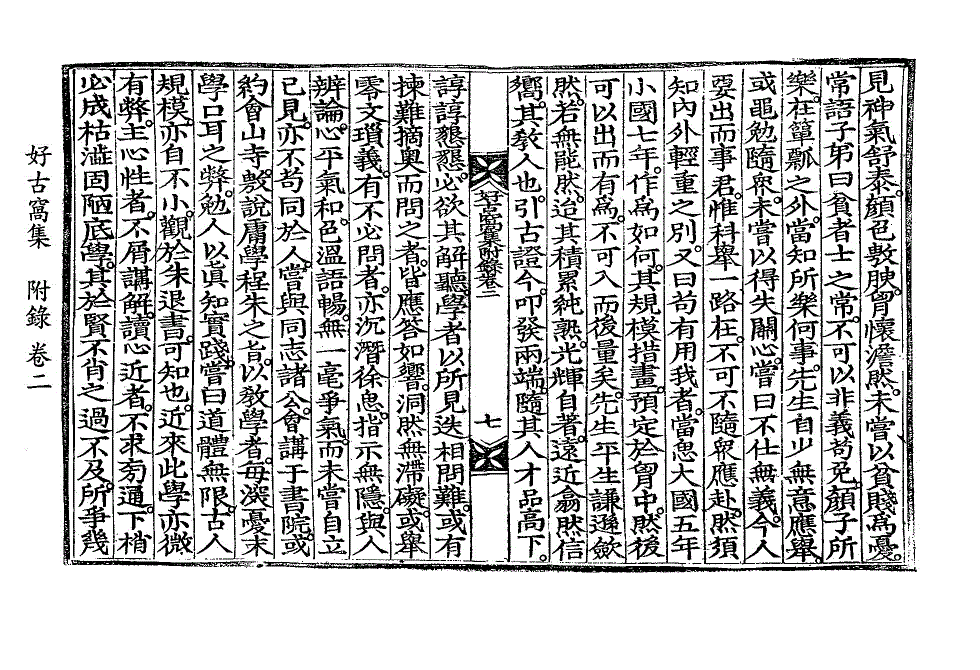 見神氣舒泰。顔色敷腴。胷懷澹然。未嘗以貧賤爲憂。
常語子弟曰貧者士之常。不可以非義苟免。顔子所
樂。在簞瓢之外。當知所樂何事。先生自少無意應擧。
或黽勉隨衆。未嘗以得失關心。嘗曰不仕無義。今人
要出而事君。惟科擧一路在。不可不隨衆應赴。然須
知內外輕重之別。又曰苟有用我者。當思大國五年
小國七年。作爲如何。其規模措畫。預定於胷中。然後
可以出而有爲。不可入而後量矣。先生平生謙遜歛
然。若無能然。迨其積累純熟。光輝自著。遠近翕然信
嚮。其敎人也。引古證今。叩發兩端。隨其人才品高下。
好古窩集附錄卷二
七
諄諄懇懇。必欲其解聽。學者以所見迭相問難。或有
揀難摘奧而問之者。皆應答如響。洞然無滯礙。或擧
零文瑣義。有不必問者。亦沉潛徐思。指示無隱。與人
辨論。心平氣和。色溫語暢。無一毫爭氣。而未嘗自立
己見。亦不苟同於人。嘗與同志諸公。會講于書院。或
約會山寺。敷說庸學程朱之旨。以敎學者。每深憂末
學口耳之弊。勉人以眞知實踐。嘗曰道體無限。古人
規模。亦自不小。觀於朱退書。可知也。近來此學亦微
有弊。主心性者。不屑講解。讀心近者。不求旁通。下梢
必成枯澁固陋底學。其於賢不肖之過不及。所爭幾
好古窩集 附錄 卷二